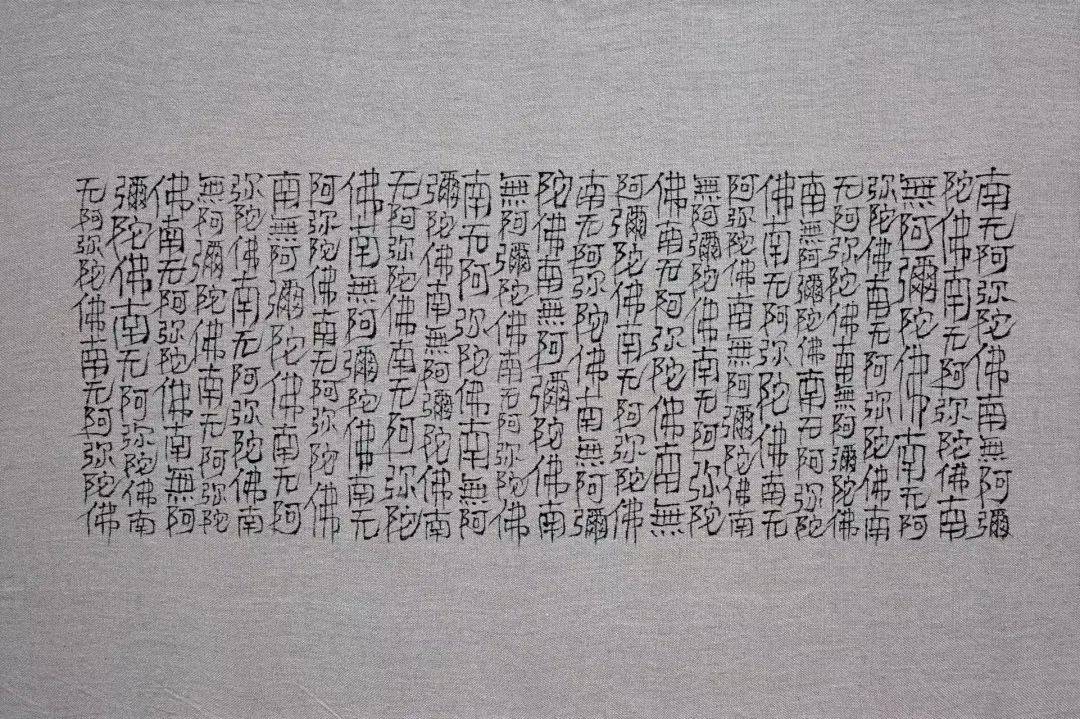 南无阿弥陀佛南無阿彌
陀佛南无阿弥陀佛南
無阿彌陀佛南无阿
弥陀佛南无阿弥陀佛南
无阿弥陀佛南無阿彌陀佛
南無阿彌陀佛南无阿弥陀
佛南无阿弥陀佛南无
阿弥陀佛南無阿彌陀佛南
無阿彌陀佛南无阿弥陀
佛南无阿弥陀佛南無
阿彌陀佛南无阿弥陀佛
南无阿弥陀佛南無阿彌
陀佛南無阿彌陀佛南
無阿彌陀佛南无阿弥陀佛
南无阿弥陀佛南無阿
彌陀佛南無阿彌陀佛南
无阿弥陀佛南无阿弥陀
佛南無阿彌陀佛南无
阿弥陀佛南无阿弥陀佛
南無阿彌陀佛南无阿
弥陀佛南无阿弥陀佛南
無阿彌陀佛南无阿弥陀
佛南无阿弥陀佛南無阿
彌陀佛南无阿弥陀佛南
无阿弥陀佛南无阿弥陀佛